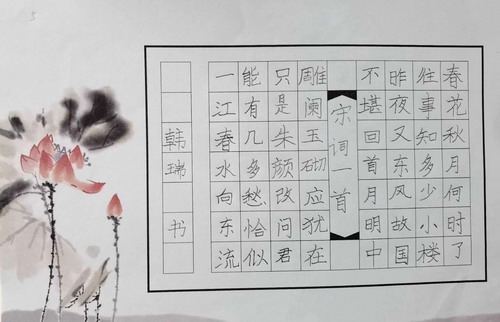 春花秋月何时了
往事知多少小楼
昨夜又东风故国
不堪回首月明中
宋词一首
雕阑玉砌应犹在
只是朱颜改问君
能有几多愁恰似
一江春水向东流
韩瑞 书